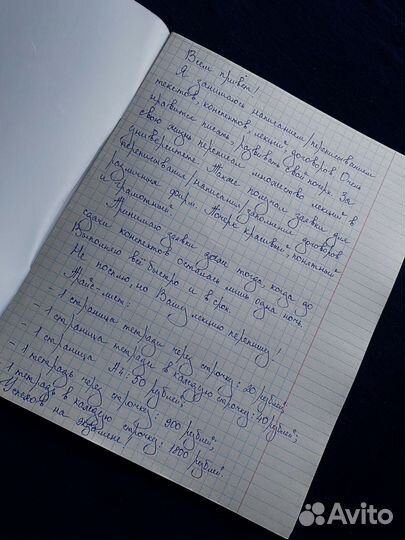 Всем привет!
Я занимаюсь написанием/переписыванием
текстов, конспектов, лекций, договоров. Очень
нравится писать, развивать свой почерк. За
свою жизнь переписала множество лекций в
университете. Также получала заявки для
переписывания/написания/заполнения договоров
различных фирм. Почерк красивый, понятный
и грамотный!
Принимаю заявки даже тогда, когда до
сдачи конспектов осталась лишь одна ночь.
Выполняю всё быстро и в срок.
Не посплю, но Вашу лекцию перепишу!
Прайс-лист:
- 1 страница тетради через строчку: 20 рублей;
- 1 страница тетради в каждую строчку: 40 рублей;
- 1 страница А4: 50 рублей;
- 1 тетрадь через строчку: 900 рублей;
- 1 тетрадь в каждую строчку: 1800 рублей.
Успехов на экзамене!
Avito